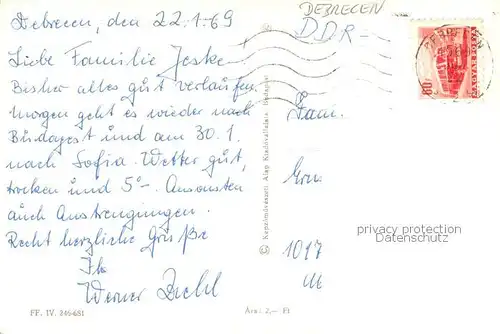 Debrecen, den 22.1.69
Liebe Familie Jeske
Bisher alles gut verlaufen
morgen geht es wieder nach
Budapest und am 30.1.
nach Sofia. Wetter gut,
trocken und 5°-. Ansonsten
auch Anstrengungen.
Recht herzliche Grüße
Ihr
Werner
FF. IV. 346-681
Ára: 2,— Ft
© Képzőművészeti Alap Kiadóvállalata, Budapest
DEBRECEN
DDR-
Fam.
1017
60
MAGYAR POSTA
privacy protection
Datenschutz